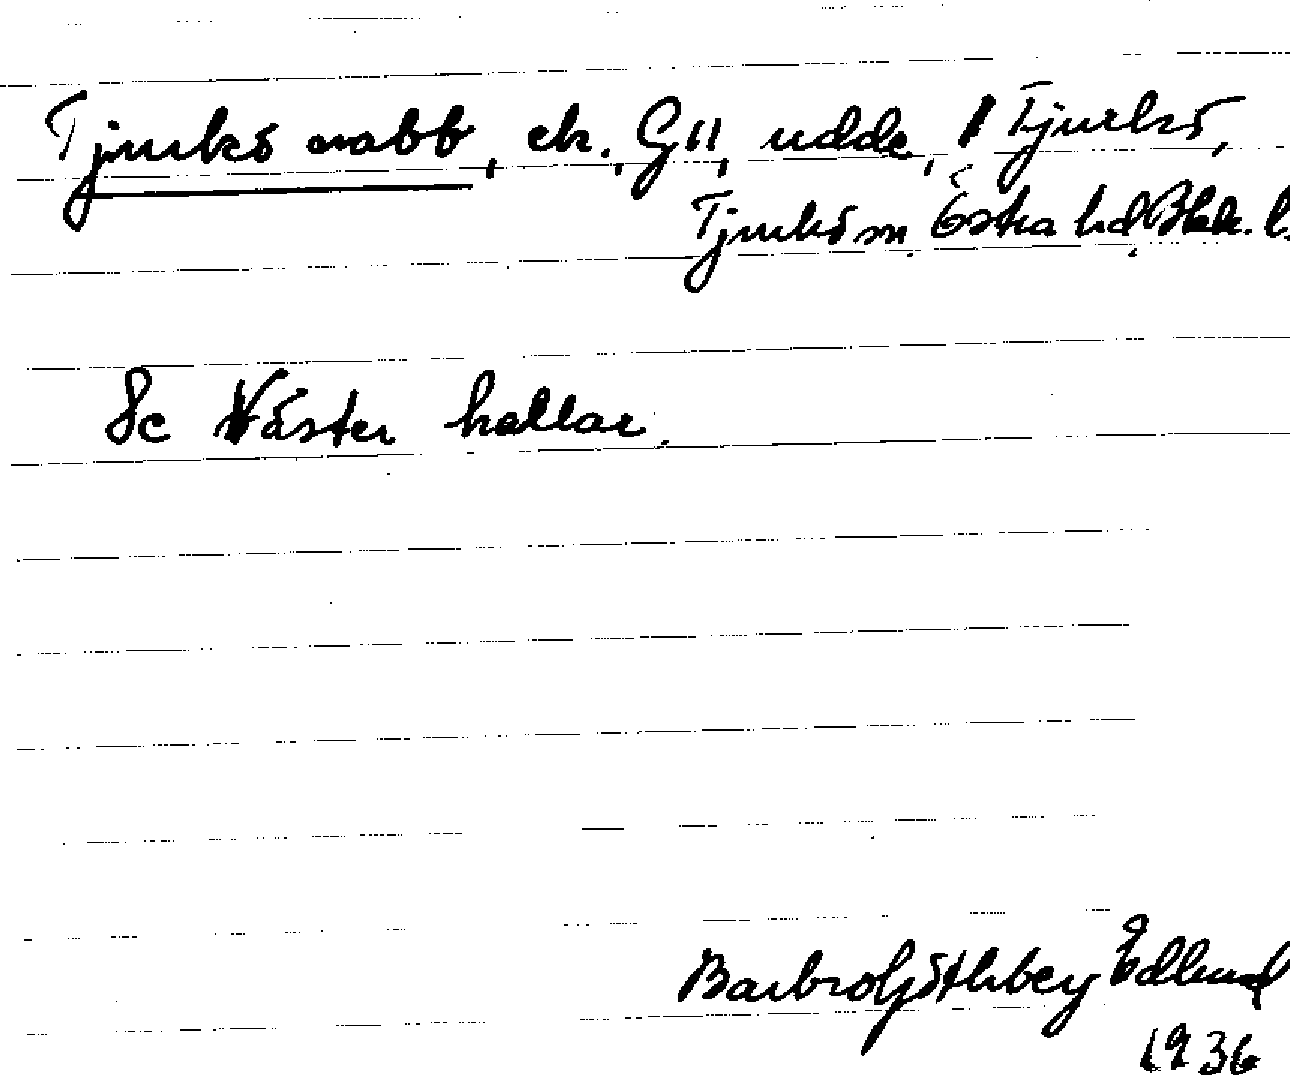 Tjurkö nabb, ek. G11, udde, Tjurkö,
Tjurkö sn. Östra hd. Blek. l.
Se Väster hallar.
Barbro Götheberg Edlund
1936